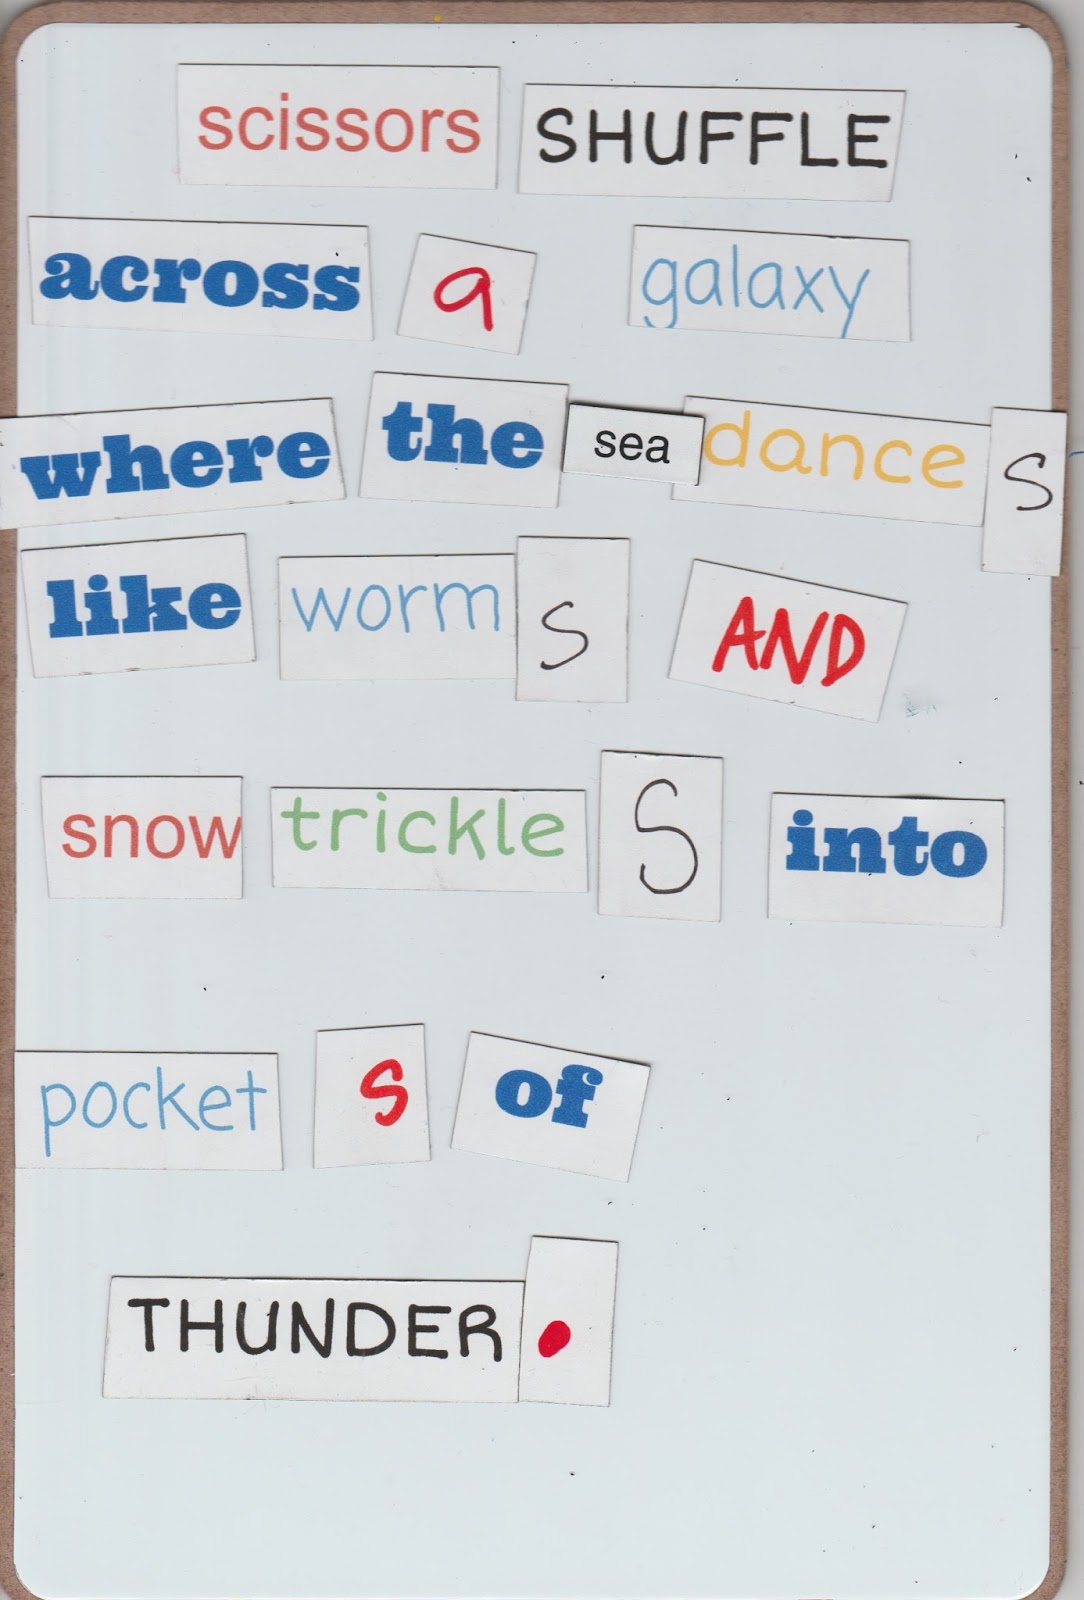 scissors SHUFFLE
across a galaxy
where the sea dances
like worms AND
snow trickleS into
pockets of
THUNDER.